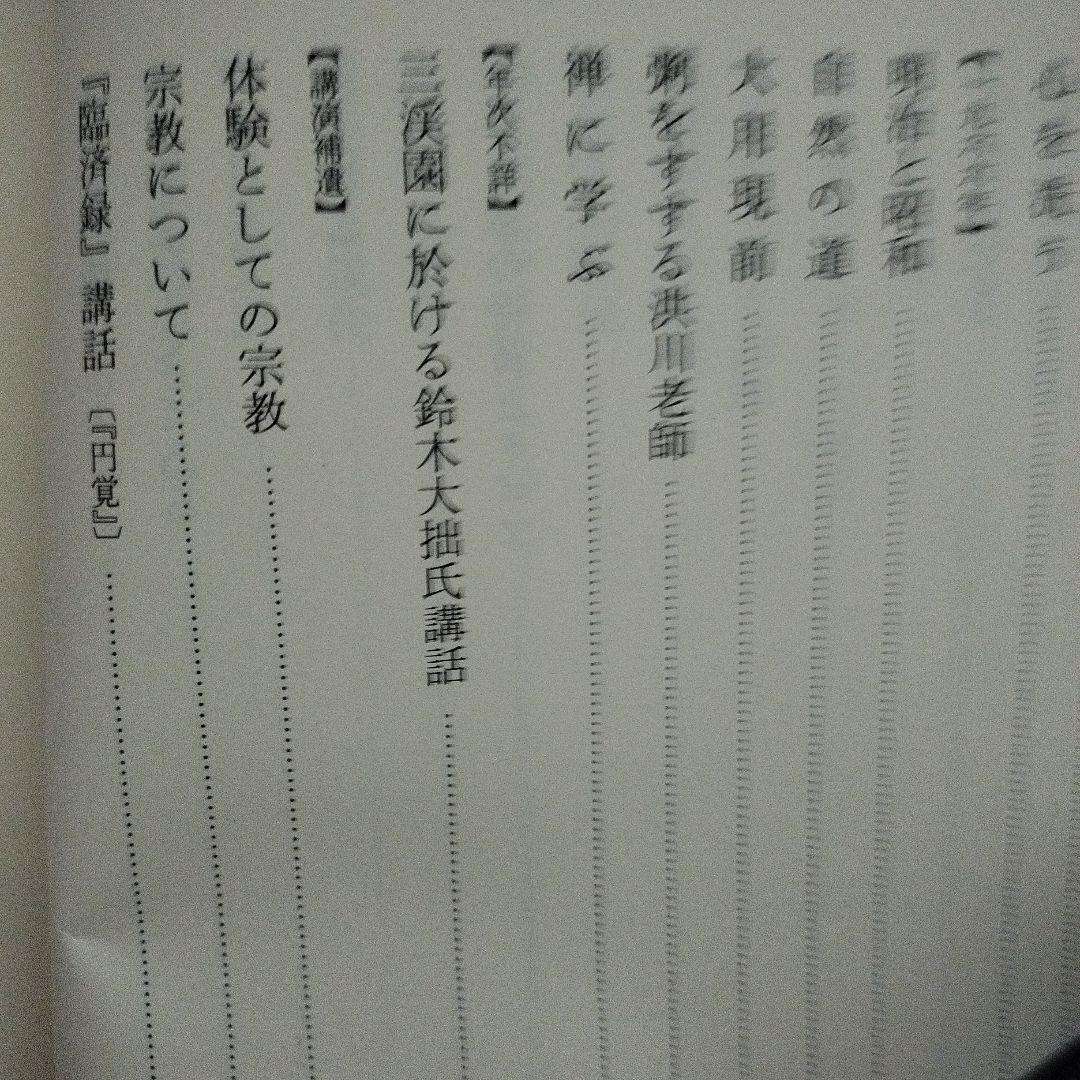 自然の道
大用現前
粥をすする洪川老師
禅に学ぶ
【年次不詳】
三渓園に於ける鈴木大拙氏講話
【講演補遺】
体験としての宗教
宗教について
『臨済録』講話 〔『円覚』〕